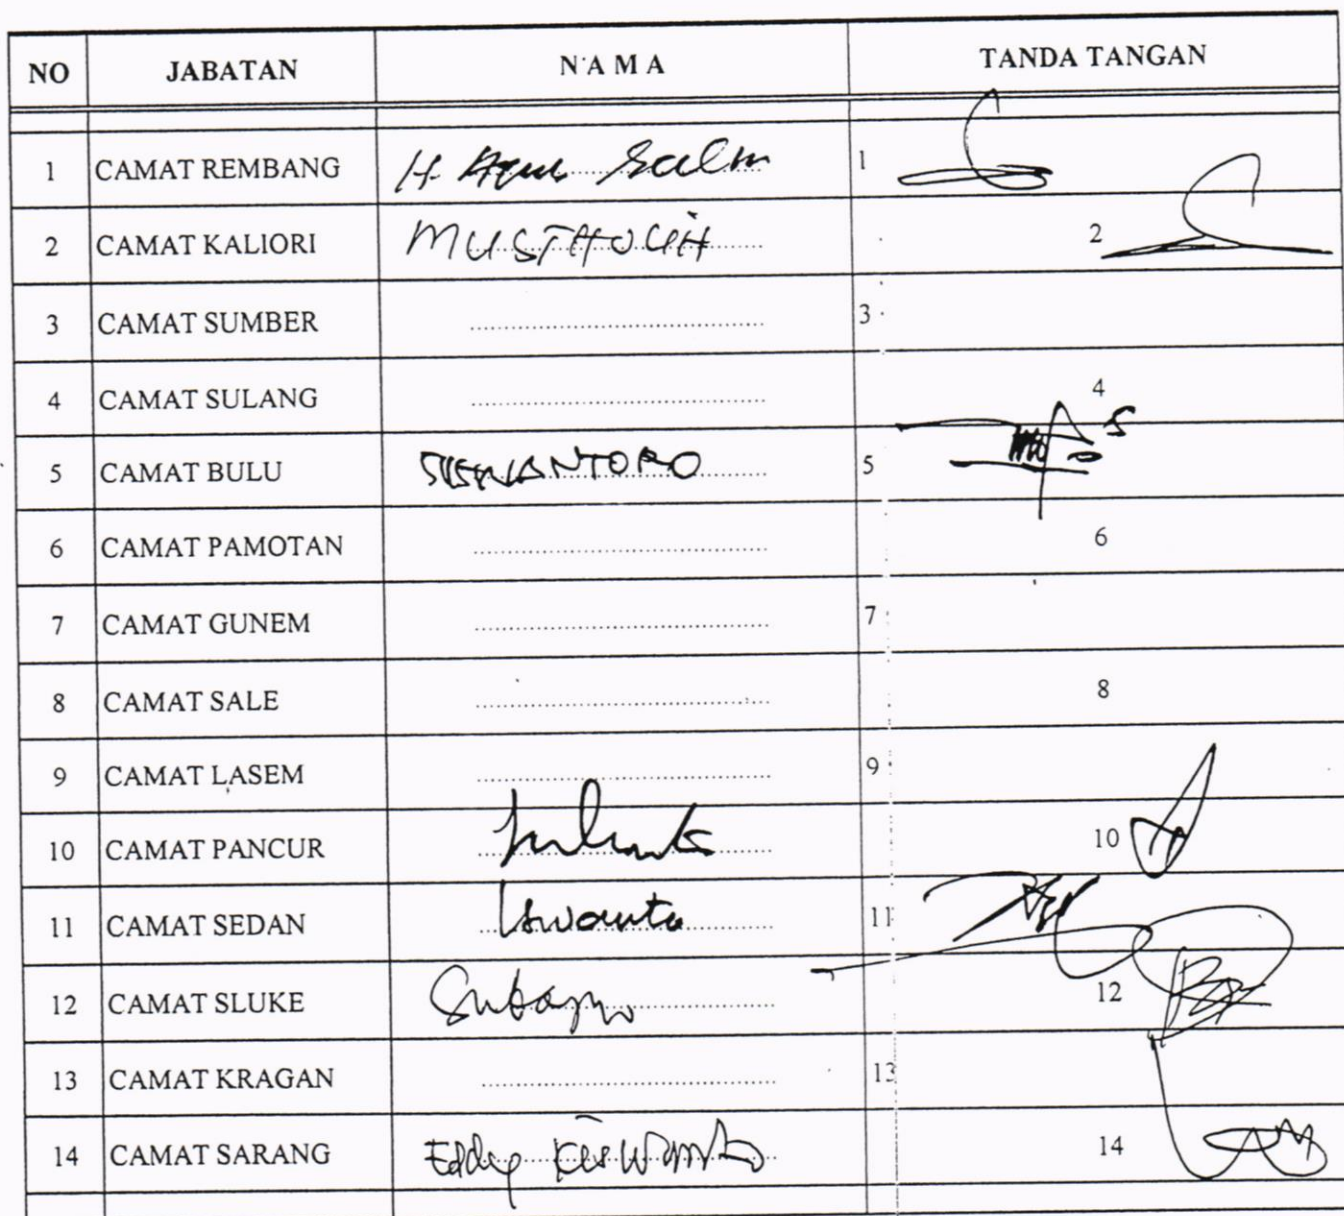 NO JABATAN N A M A TANDA TANGAN
1 CAMAT REMBANG H. Agus Salim 1
2 CAMAT KALIORI 2
3 CAMAT SUMBER .................... 3
4 CAMAT SULANG .................... 4
5 CAMAT BULU 5
6 CAMAT PAMOTAN .................... 6
7 CAMAT GUNEM .................... 7
8 CAMAT SALE .................... 8
9 CAMAT LASEM .................... 9
10 CAMAT PANCUR 10
11 CAMAT SEDAN Iswanto 11
12 CAMAT SLUKE 12
13 CAMAT KRAGAN .................... 13
14 CAMAT SARANG Eddy Kiswanto 14